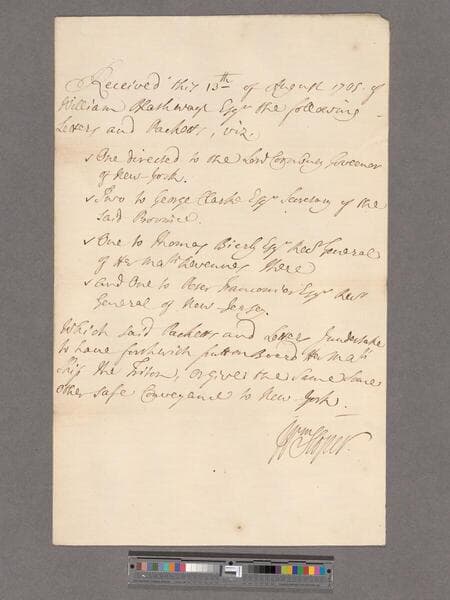 Received this 13th of August 1705. of
William Blathwayt Esqr the following
Letters and Packetts, viz.
One directed to the Lord Cornbury Governor
of New-York.
Two to George Clarke Esqr Secretary of the
said Province.
One to Thomas Byerly Esqr Recr General
of Her Mats Revenues there
And One to Peter Fauconier Esqr Recr
General of New Jersey.
Which said Packetts and Letters I undertake
to have forthwith putt on Board Her Mats
Ship the Triton, or give the same some
other safe Conveyance to New-York.
Wm